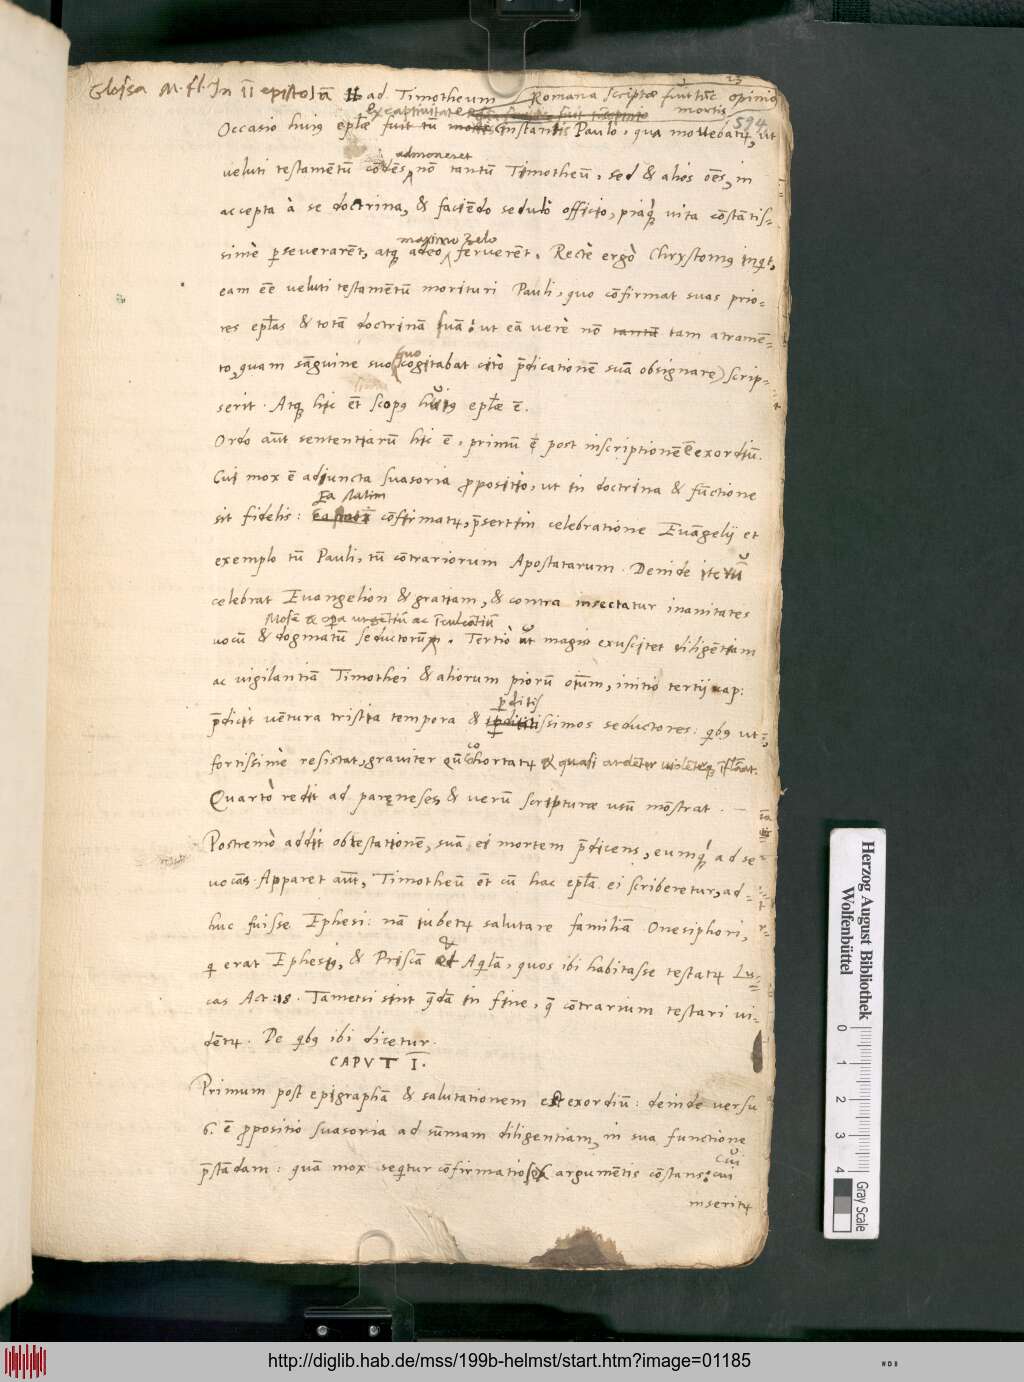 Glossa M. fl. In II epistolā ad Timotheum
Romana scriptæ fuit hæc opinio
ex captivitate
mortis
594
Occasio huiꝰ eplæ fuit tū instantis Paulo, qua movebatur, ut
admoneret
veluti testamētū cōdēs, nō tantū Timotheū, sed & alios oēs, in
accepta à se doctrina, & faciēdo sedulò officio, piaq́ vita cōstātis-
maximo zelo
simè perseverarēt, atq adeò ferverēt. Rectè ergò Chrysostomꝰ inqit,
eam ēe veluti testamētū morituri Pauli, quo cōfirmat suas prio-
res eplas & totā doctrinā suā: ut eā verè nō tantū tam atramē-
quo
to, quam sāguine suo (cogitabat citò p̄dicationē suā obsignare) scrip-
serit. Atq hic ēt scopꝰ huiꝰ eplæ ē.
Ordo aūt sententiarū hic ē, primū ē post inscriptionē exordiū.
Cui mox ē adiuncta suasoria propositio, ut in doctrina & fūctione
Ea statim
sit fidelis: cōfirmatur, p̄sertim celebratione Evāgelij et
exemplo tū Pauli, tū cōtrariorum Apostatarum. Deinde iterū
celebrat Evangelion & gratiam, & contra insectatur inanitates
vocū & dogmatū seductorū. Tertiò ut magis exuscitet diligētiam
ac vigilantiā Timothei & aliorum piorū oīum, initio tertij cap:
p̄ditis
p̄dicit vētura tristia tempora & seductores: qibꝰ ut
fortissimè resistat, graviter hortatur & quasi
Quartò redit ad paręneses & verū scripturæ usū mōstrat.
Postremò addit obtestationē, suā ei mortem p̄dicens, eumq́ ad se
vocās. Apparet aūt, Timotheū ēt cū hac epla ei scriberetur, ad-
huc fuisse Ephesi: nā iubetur salutare familiā Onesiphori,
&
qi erat Ephesi, & Priscā Aqilā, quos ibi habitasse testatur Lu-
cas Act: 18. Tametsi sint q̄dā in fine, q̄ cōtrarium testari vi-
dētur. De qibꝰ ibi dicetur.
CAPVT I.
Primum post epigraphā & salutationem est exordiū: deinde versu
6. ē propositio suasoria ad sūmam diligentiam, in sua functione
p̄stādam: quā mox seqitur cōfirmatio argumētis cōstans: cui
cui
inseritur
Herzog August Bibliothek
Wolfenbüttel
0 1 2 3 4
Gray Scale
http://diglib.hab.de/mss/199b-helmst/start.htm?image=01185